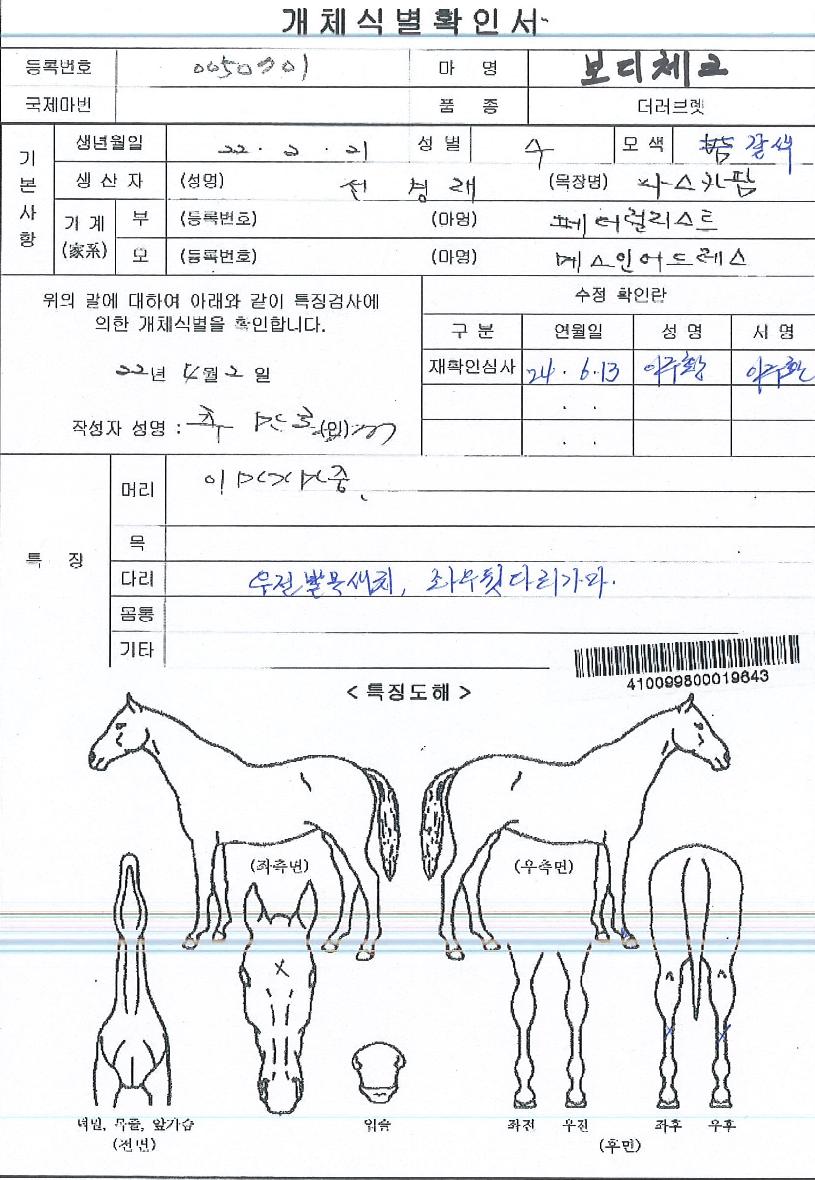 개체식별확인서
등록번호 0050701 마 명 보디체크
국제마번 품 종 더러브렛
기본사항
생년월일 22 . 2 . 21 성 별 수 모 색 갈색
생 산 자 (성명) 전 병 래 (목장명)
가 계 (家系) 부 (등록번호) (마명) 페더럴리스트
모 (등록번호) (마명) 메스인어드레스
위의 말에 대하여 아래와 같이 특징검사에
의한 개체식별을 확인합니다.
22년 4월 2 일
작성자 성명 : (인)
수정 확인란
구 분 연월일 성 명 서 명
재확인심사 24 . 6 . 13
. .
. .
특 징
머리
목
다리 우전발목새치, 좌우뒷다리가마.
몸통
기타
410099800019643
< 특징도해 >
(좌측면) (우측면)
턱밑, 목줄, 앞가슴 입술 좌전 우전 좌후 우후
(전면) (후면)